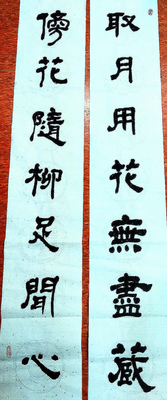 取月用花無盡藏
傍花隨柳足閒心